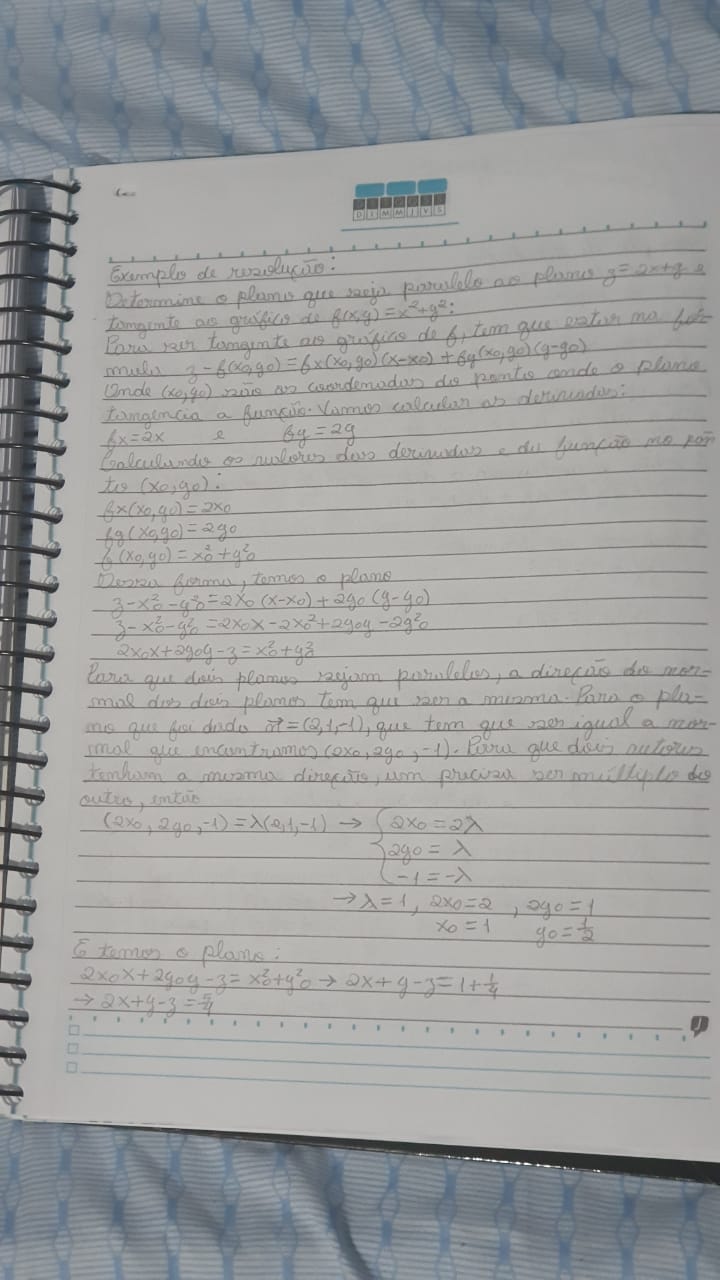 D I M M J V S
Exemplo de resolução:
Determine o plano que seja paralelo ao plano z=2x+y e
tangente ao gráfico de f(x,y)=x²+y²:
Para ser tangente ao gráfico de f, tem que estar na fór-
mula z-f(x0,y0)=fx(x0,y0)(x-x0)+fy(x0,y0)(y-y0)
Onde (x0,y0) são as coordenadas do ponto onde o plano
tangencia a função. Vamos calcular as derivadas:
fx=2x e fy=2y
Calculando os valores das derivadas e da função no pon
to (x0,y0):
fx(x0,y0)=2x0
fy(x0,y0)=2y0
f(x0,y0)=x0²+y0²
Dessa forma, temos o plano
z-x0²-y0²=2x0(x-x0)+2y0(y-y0)
z-x0²-y0²=2x0x-2x0²+2y0y-2y0²
2x0x+2y0y-z=x0²+y0²
Para que dois planos sejam paralelos, a direção da nor-
mal dos dois planos tem que ser a mesma. Para o pla-
no que foi dado n⃗=(2,1,-1), que tem que ser igual a nor-
mal que encontramos (2x0,2y0,-1). Para que dois vetores
tenham a mesma direção, um precisa ser múltiplo do
outro, então
(2x0,2y0,-1)=λ(2,1,-1) → { 2x0=2λ
2y0=λ
-1=-λ
→λ=1, 2x0=2, 2y0=1
x0=1 y0=1/2
E temos o plano:
2x0x+2y0y-z=x0²+y0² → 2x+y-z=1+1/4
→ 2x+y-z=5/4